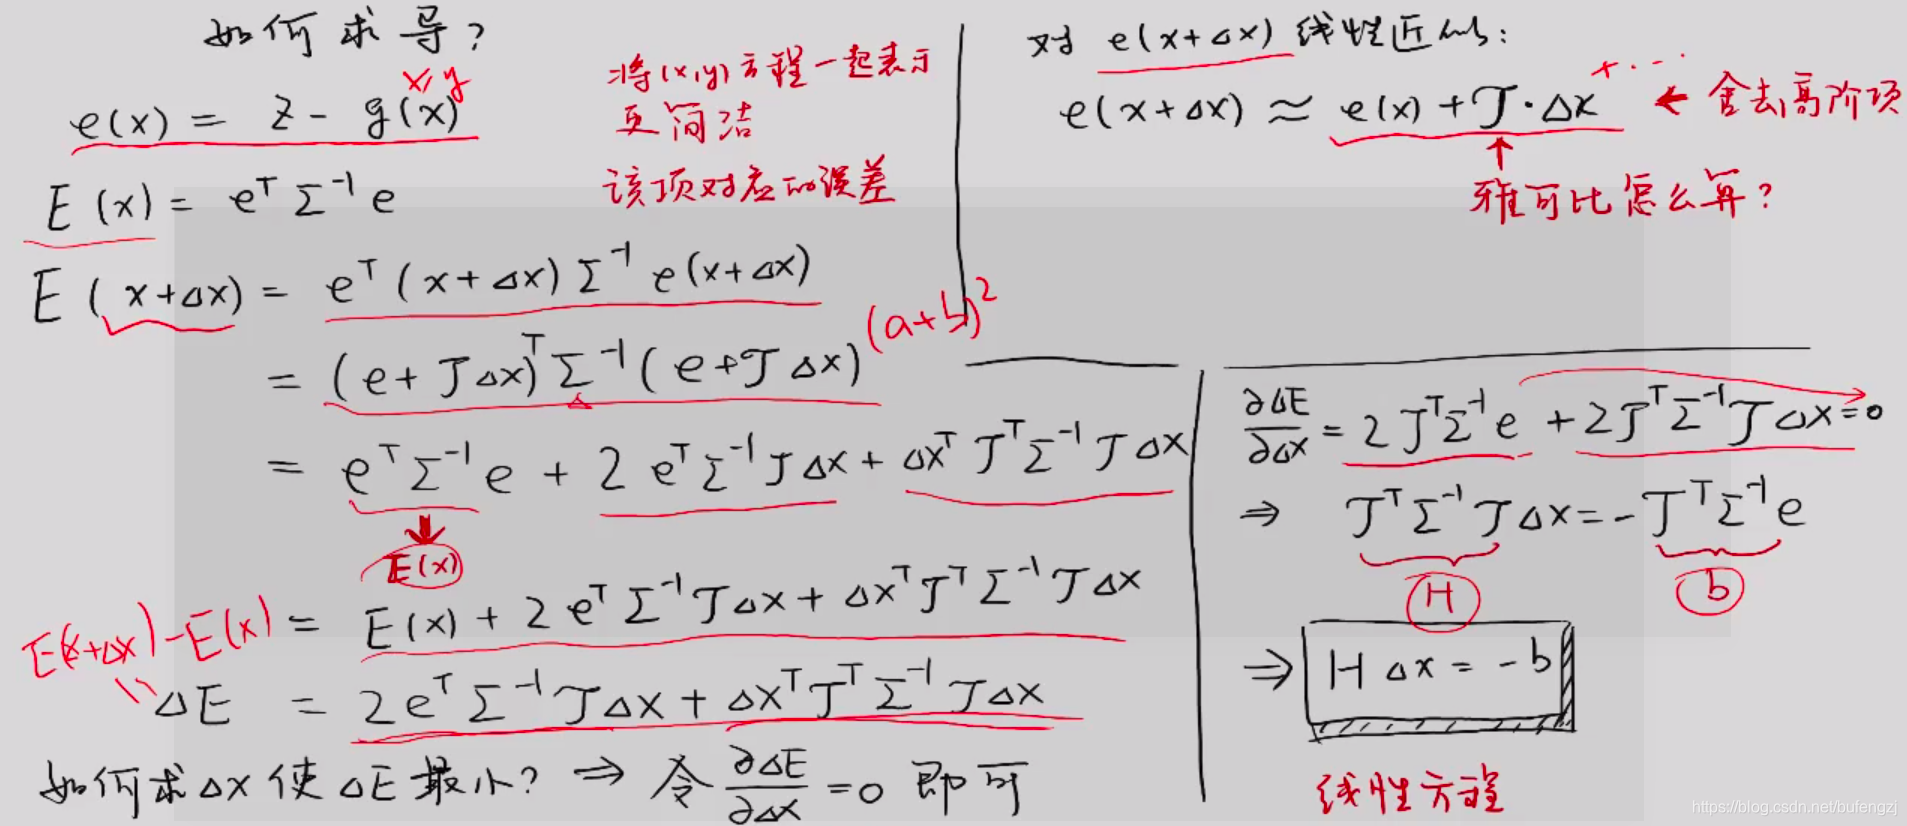 如何求导?
x,y
e(x) = z - g(x)
将(x,y)方程一起表示
更简洁
该项对应的误差
E(x) = eᵀ Σ⁻¹ e
E(x+Δx) = eᵀ(x+Δx) Σ⁻¹ e(x+Δx)
= (e+JΔx)ᵀ Σ⁻¹ (e+JΔx)
(a+b)²
= eᵀ Σ⁻¹ e + 2 eᵀ Σ⁻¹ J Δx + Δxᵀ Jᵀ Σ⁻¹ J Δx
E(x)
E(x+Δx) - E(x) = E(x) + 2 eᵀ Σ⁻¹ J Δx + Δxᵀ Jᵀ Σ⁻¹ J Δx
ΔE = 2 eᵀ Σ⁻¹ J Δx + Δxᵀ Jᵀ Σ⁻¹ J Δx
如何求Δx使ΔE最小? ⇒ 令 ∂ΔE/∂Δx = 0 即可
对 e(x+Δx) 线性近似:
+ · · ·
e(x+Δx) ≈ e(x) + J·Δx ← 舍去高阶项
雅可比怎么算?
∂ΔE/∂Δx = 2JᵀΣ⁻¹e + 2JᵀΣ⁻¹JΔx = 0
⇒ JᵀΣ⁻¹JΔx = -JᵀΣ⁻¹e
H b
⇒ HΔx = -b
线性方程
https://blog.csdn.net/bufengzj